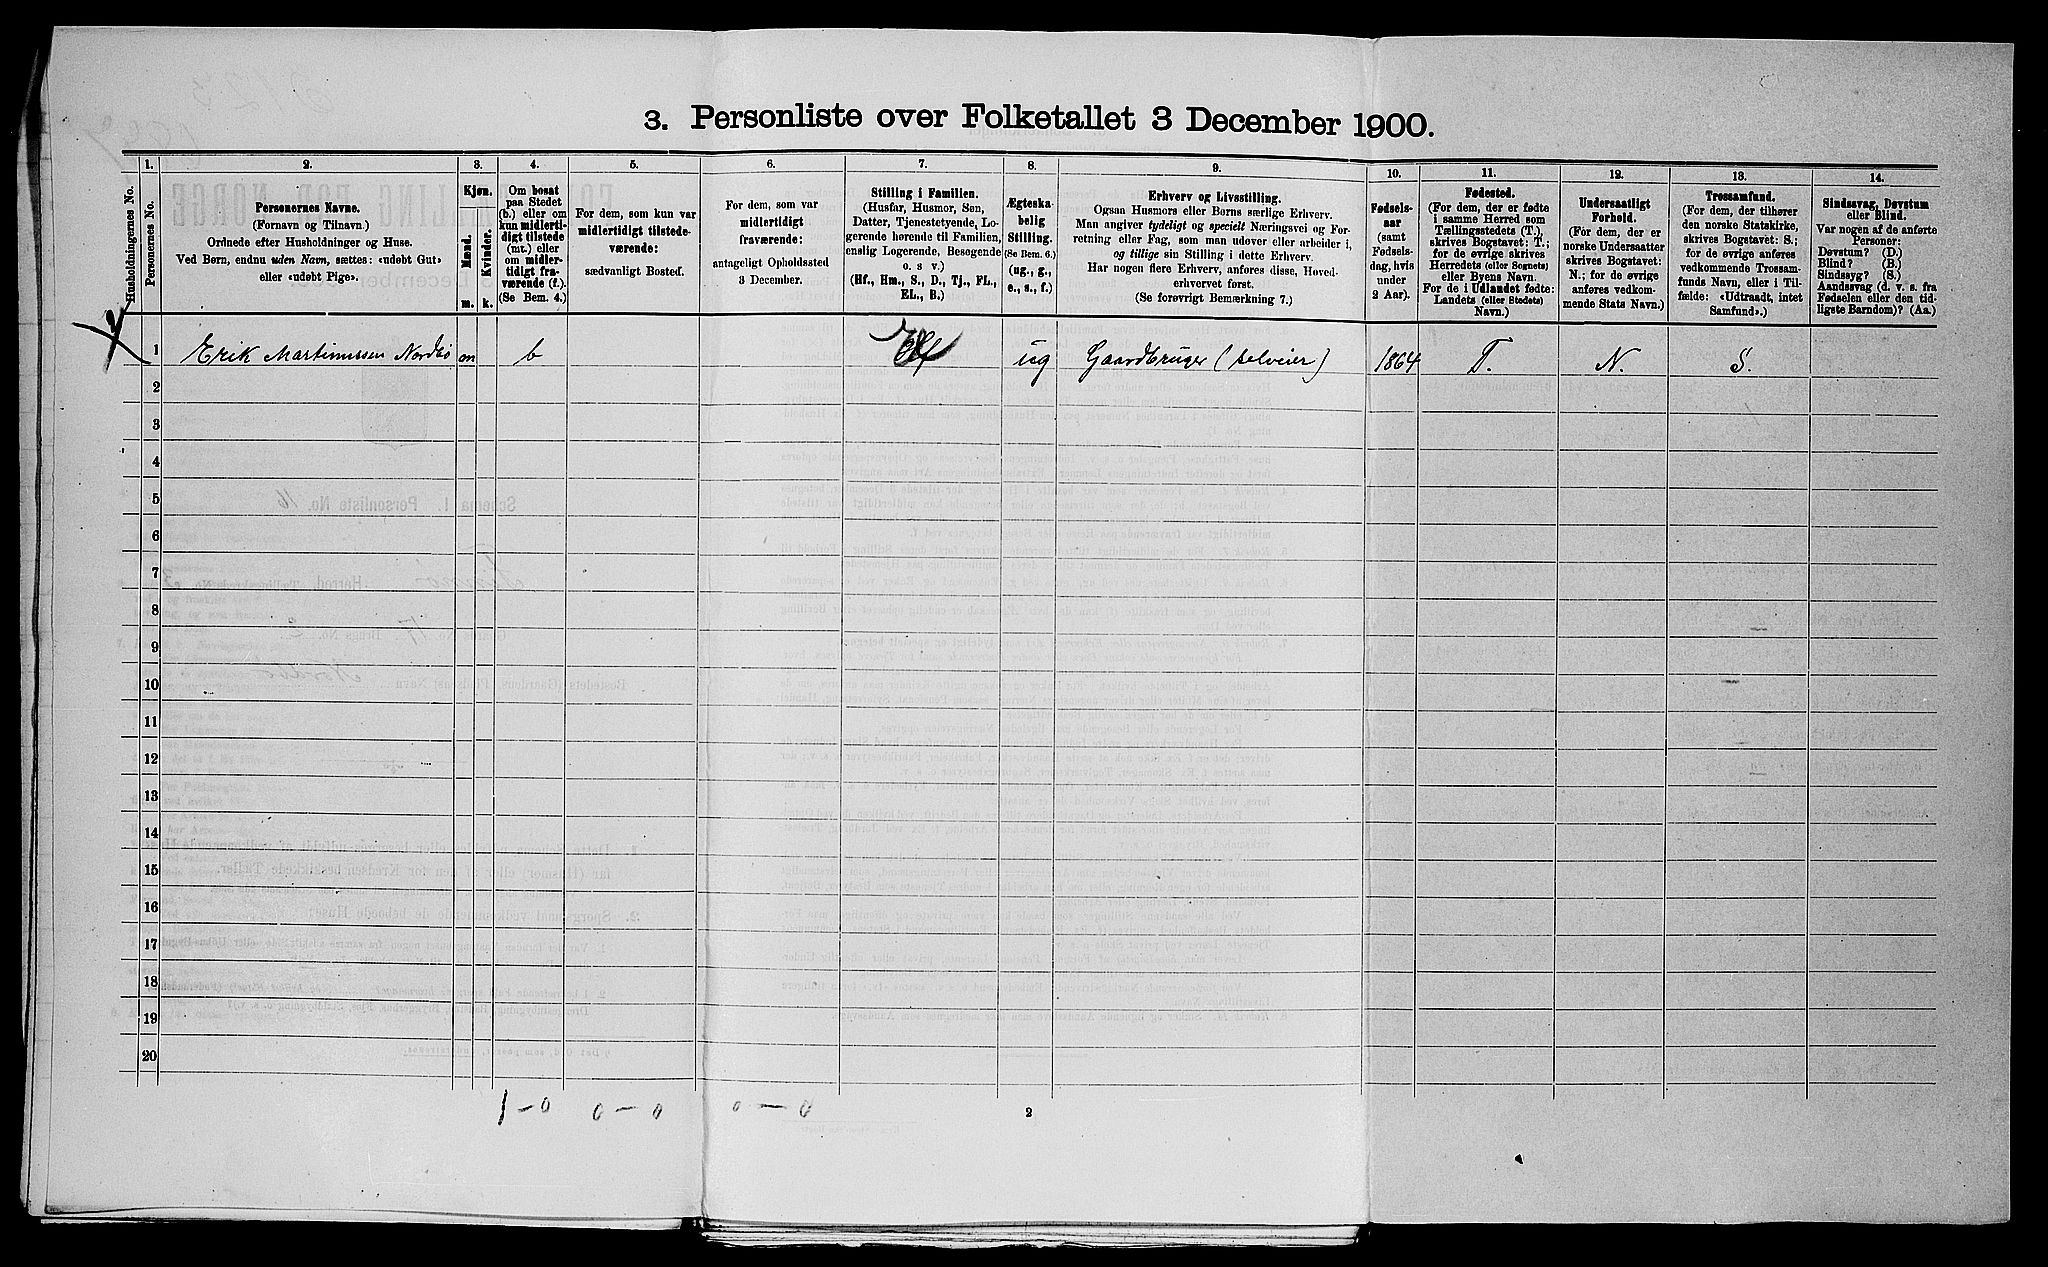 3. Personliste over Folketallet 3 December 1900.
Husholdningernes No.
1.
Personernes No.
2.
Personernes Navne.
(Fornavn og Tilnavn.)
Ordnede efter Husholdninger og Huse.
Ved Børn, endnu uden Navn, sættes: «udøbt Gut»
eller «udøbt Pige».
3.
Kjøn.
Mænd.
Kvinder.
m.
k.
4.
Om bosat
paa Stedet
(b.) eller om
kun midlerti-
digt tilstede
(mt.) eller
om midler-
tidigt fra-
værende (f.).
(Se Bem. 4.)
5.
For dem, som kun var
midlertidigt tilstede-
værende:
sædvanligt Bosted.
6.
For dem, som var
midlertidigt
fraværende:
antageligt Opholdssted
3 December.
7.
Stilling i Familien.
(Husfar, Husmor, Søn,
Datter, Tjenestetyende, Lo-
gerende hørende til Familien,
enslig Logerende, Besøgende
o. s v.)
(Hf., Hm., S., D., Tj., FL.,
EL., B.)
8.
Ægteska-
belig
Stilling.
(Se Bem. 6.)
(ug., g.,
e., s., f.)
9.
Erhverv og Livsstilling.
Ogsaa Husmors eller Børns særlige Erhverv.
Man angiver tydeligt og specielt Næringsvei og For-
retning eller Fag, som man udover eller arbeider i,
og tillige sin Stilling i dette Erhverv.
Har nogen flere Erhverv, anføres disse, Hoved-
erhvervet først.
(Se forøvrigt Bemærkning 7.)
10.
Fødsels-
aar
(samt
Fødsels-
dag, hvis
under
2 Aar).
11.
Fødested.
(For dem, der er fødte
i samme Herred som
Tællingsstedets (T.),
skrives Bogstavet: T.;
for de øvrige skrives
Herredets (eller Sognets)
eller Byens Navn.
For de i Udlandet fødte:
Landets (eller Stedets)
Navn.)
12.
Undersaatligt
Forhold.
(For dem, der er
norske Undersaatter
skrives Bogstavet:
N.; for de øvrige
anføres vedkom-
mende Stats Navn.)
13.
Trossamfund.
(For dem, der tilhører
den norske Statskirke,
skrives Bogstavet: S.;
for de øvrige anføres
vedkommende Trossam-
funds Navn, eller i Til-
fælde: «Udtraadt, intet
Samfund».)
14.
Sindssvag, Døvstum
eller Blind.
Var nogen af de anførte
Personer:
Døvstum? (D.)
Blind? (B.)
Sindssyg? (S.)
Aandssvag (d. v. s. fra
Fødselen eller den tid-
ligste Barndom)? (Aa.)
1 Erik Martinussen Nordbö m b Hf ug Gaardbruger (selveier) 1864 T. N. S.
2
3
4
5
6
7
8
9
10
11
12
13
14
15
16
17
18
19
20
1 – 0 0 – 0 0 – 0
2